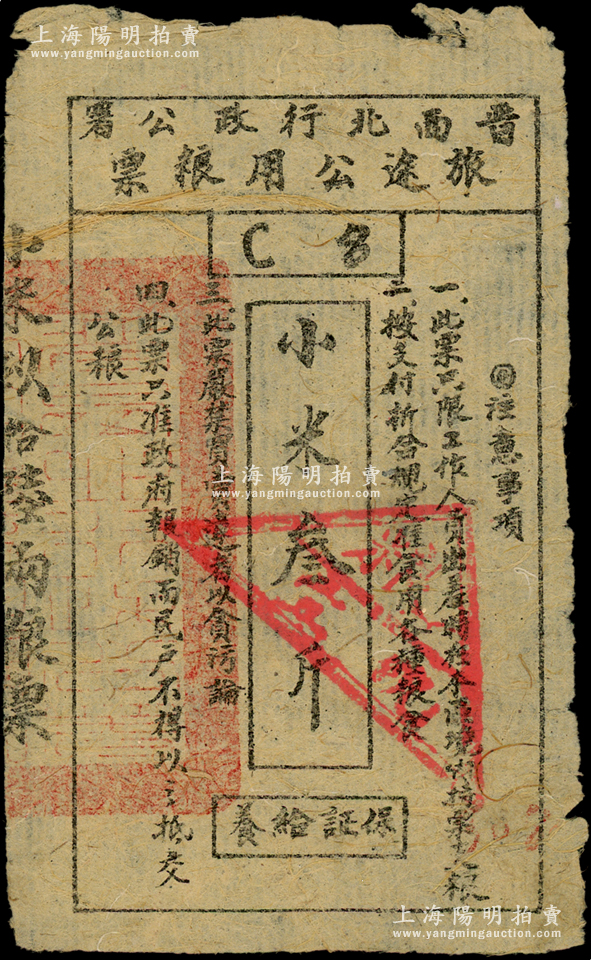 上海陽明拍賣
www.yangmingauction.com
晋西北行政公署
旅途公用粮票
C
小米叁斤
保証給養
注意事項
一、此票只限工作人員出差時在本區境內持票支粮
二、按支付折合規定准食用各種粮食
三、此票嚴禁買賣違者以貪污論
四、此票只准政府報銷而民戶不得以之抵交
公粮
小米玖拾陸兩粮票
上海陽明拍賣
www.yangmingauction.com
上海陽明拍賣
www.yangmingauction.com